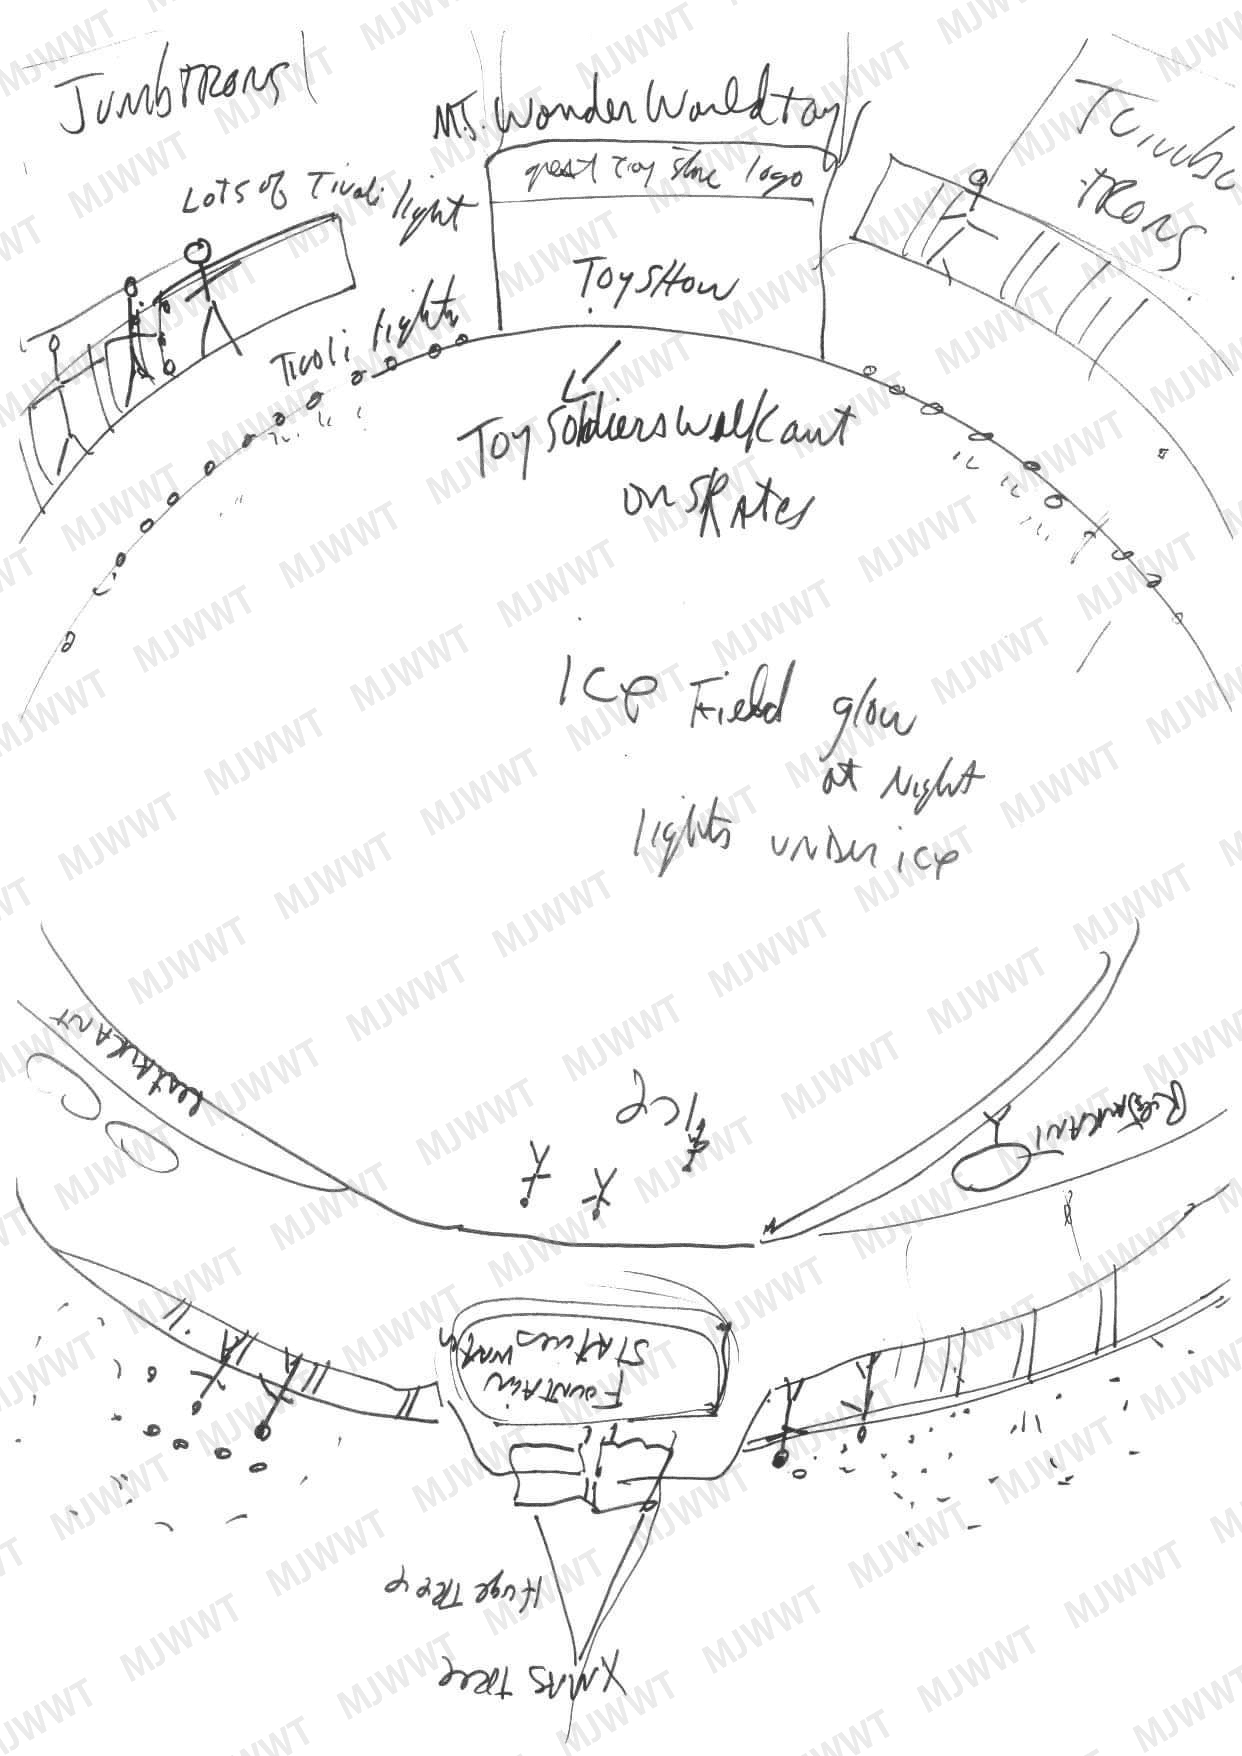 Jumbtrons
M.J. Wonder World toys
great toy store logo
Jumbo
trons
Lots of Tivoli light
Toy Show
Tivoli lights
Toy Soldiers walk out
on skates
Ice Field glow
at Night
lights under ice
Restaurant
Ice
Restaurant
Fountain
Statues water
Huge Tree
Xmas Tree
MJWWT